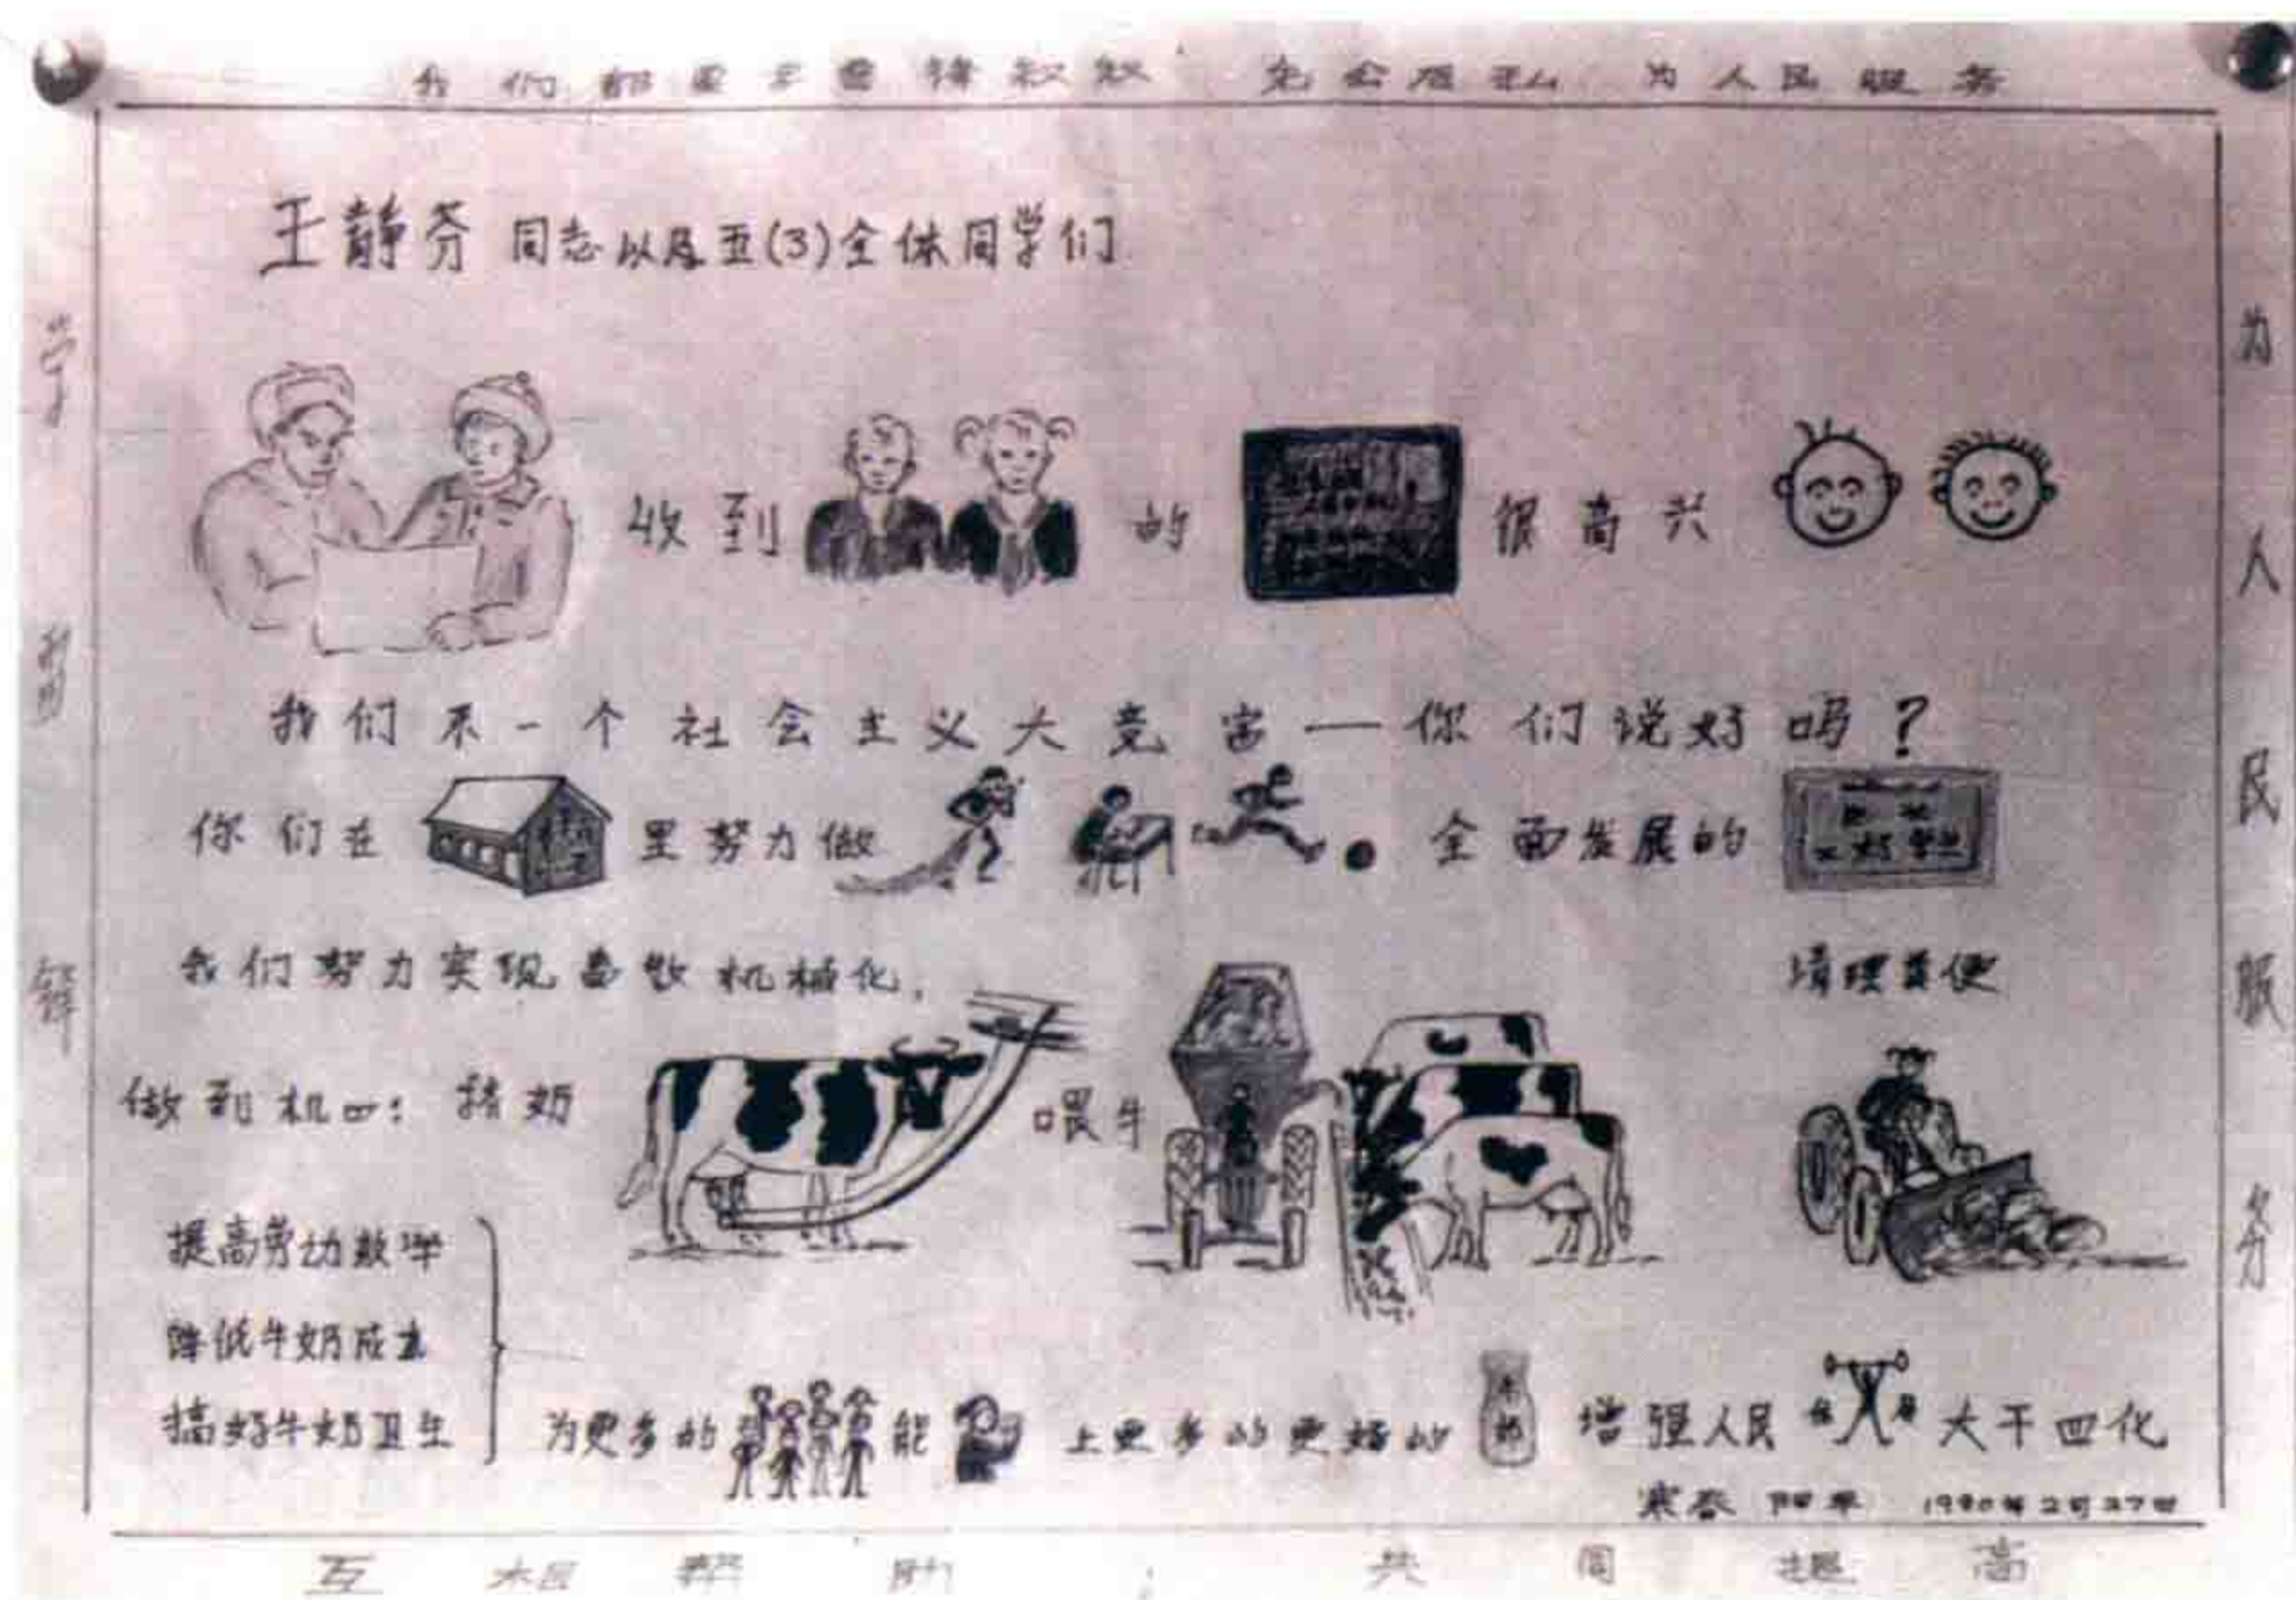 我们都要学雷锋叔叔 先公后私 为人民服务
王静芬同志以及五(3)全体同学们
收到 的 很高兴
我们来一个社会主义大竞赛—你们说好吗?
你们在 里努力做 全面发展的
我们努力实现畜牧机械化,
清理粪便
做到机 : 挤奶 喂牛
提高劳动效率
降低牛奶成本
搞好牛奶卫生
为更多的 能 上更多的更好的 牛奶 增强人民 大干四化
寒春 阳早 1980年2月27日
学
锋
为人民服务
互相帮助; 共同提高